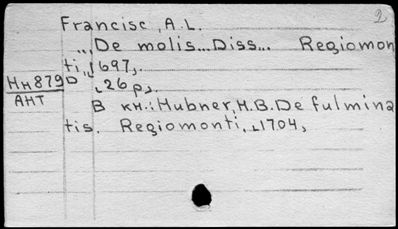 2
Francisc, A.L.
„De molis... Diss... Regiomon
ti, 1697,.
Нн879 D ,26p.
АНТ
В кн.: Hubner, H.B. De fulmina
tis. Regiomonti, 1704,